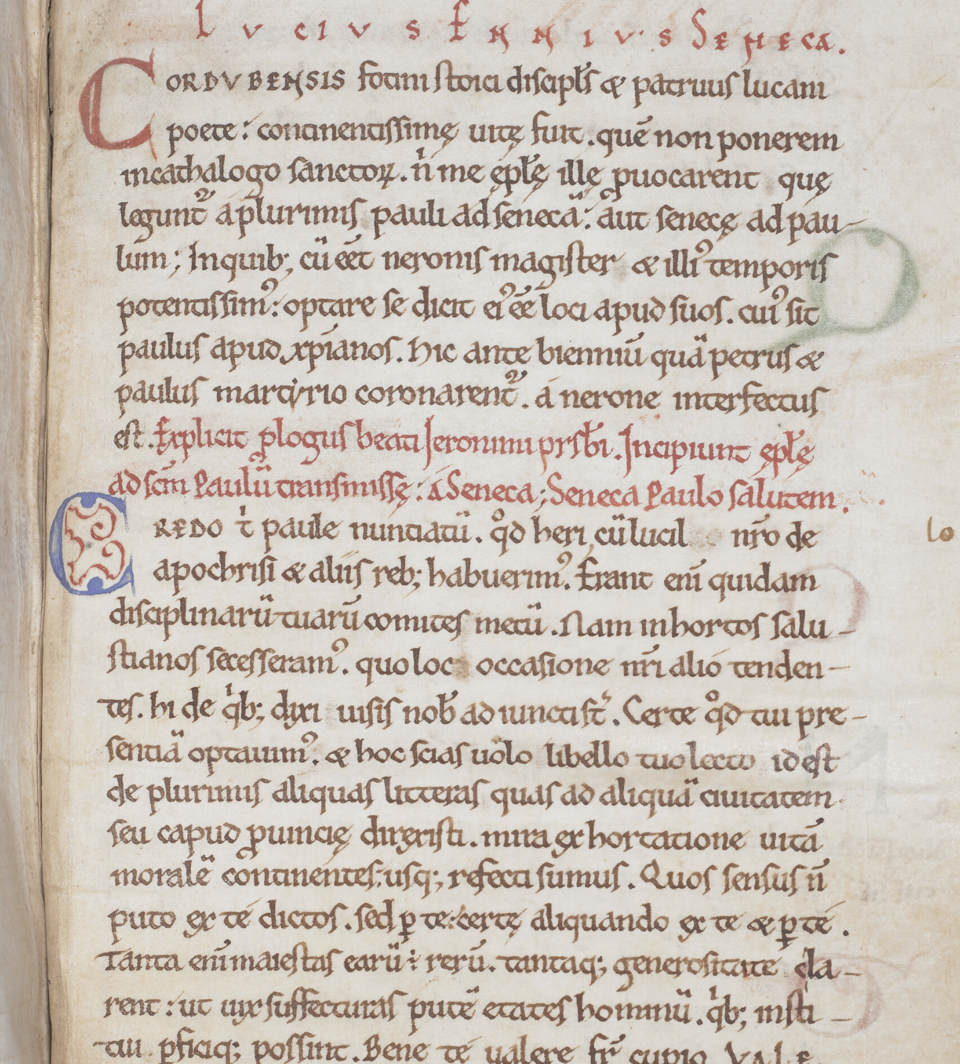 LUCIUS ENNIUS SENECA.
CORDUBENSIS Fotini stoici discipłs & patruus lucani
poete: continentissimę uitę fuit. quē non ponerem
incathalogo sanctoꝝ. ń me epłę ille ꝓuocarent quę
legunt̃ a plurimis pauli ad senecā: aut senecę ad pau-
lum; Inquib; cū eēt neronis magister & illi᾽ temporis
potentissim᾽: optare se dicit ei᾽ eē loci apud suos. cui᾽ sit
paulus apud xp̄ianos. Hic ante bienniū quā petrus &
paulus martyrio coronarent̃. a nerone interfectus
est. Explicit ꝓlogus beati Ieronimi prsb̄i. Incipiunt epłę
ad scm̄ Paulū transmissę: a Seneca; Seneca Paulo salutem.
CREDO t̓ paule nunciatū. qd̓ heri cū lucil nr̄o de
apochrisi & aliis reb; habuerim᾽. Erant eni̅ quidam
disciplinarū tuarū comites mecū. Nam inhortos salu-
stianos secesseram᾽. quo loc occasione nr̄i alio tenden-
tes. hi de qb̓; dixi uisis nob̄ ad iuncti st̄. Certe qd̓ tui pre-
sentiā optauim᾽. & hoc scias uolo libello tuo lecto id est
de plurimis aliquas litteras quas ad aliquā ciuitatem
seu capud ꝓuincię direxisti. mira exhortatione uitā
moralē continentes; usq; refecti sumus. Quos sensus ñ
puto ex te dictos. sed ꝑ te: certe aliquando ex te & ꝑ te.
Tanta eni̅ maiestas earū ÷ rerū. tantaq; generositate cla-
rent: ut uix suffecturas putē etates hominū. qb̓; insti-
tui ꝑficiq; possint. Bene te ualere fr̄ cupio. VALE
lo